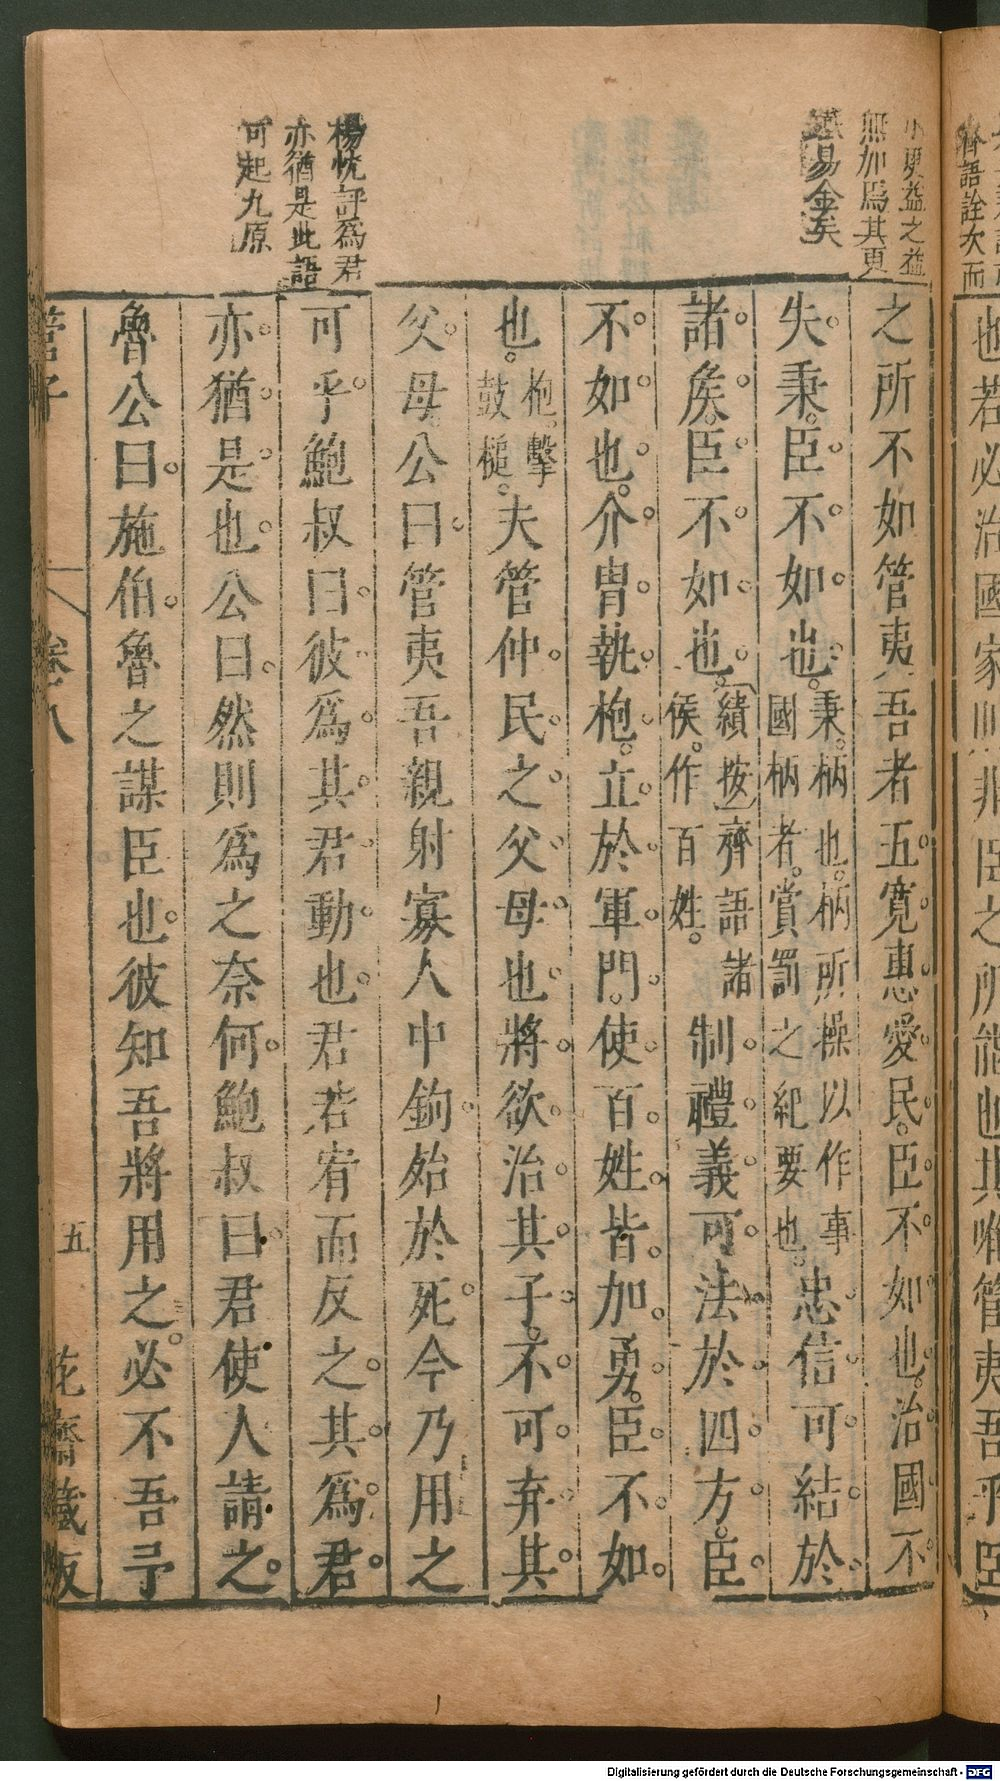 小更益之益
無加焉其更
易金矣
楊忱評爲君
亦猶是此語
可起九原
之所不如管夷吾者五寬惠愛民臣不如也治國不
失秉臣不如也秉柄也柄所操以作事國柄者賞罰之紀要也忠信可結於
諸矦臣不如也續按齊語諸侯作百姓制禮義可法於四方臣
不如也介冑執枹立於軍門使百姓皆加勇臣不如
也枹擊鼓槌夫管仲民之父母也將欲治其子不可弃其
父母公曰管夷吾親射寡人中鉤殆於死今乃用之
可乎鮑叔曰彼爲其君動也君若宥而反之其爲君
亦猶是也公曰然則爲之奈何鮑叔曰君使人請之
魯公曰施伯魯之謀臣也彼知吾將用之必不吾予
管子 卷八 五 花齋藏板
齊語詮次而
也若必治國家則非臣之所能也其唯管夷吾乎臣
Digitalisierung gefördert durch die Deutsche Forschungsgemeinschaft - DFG